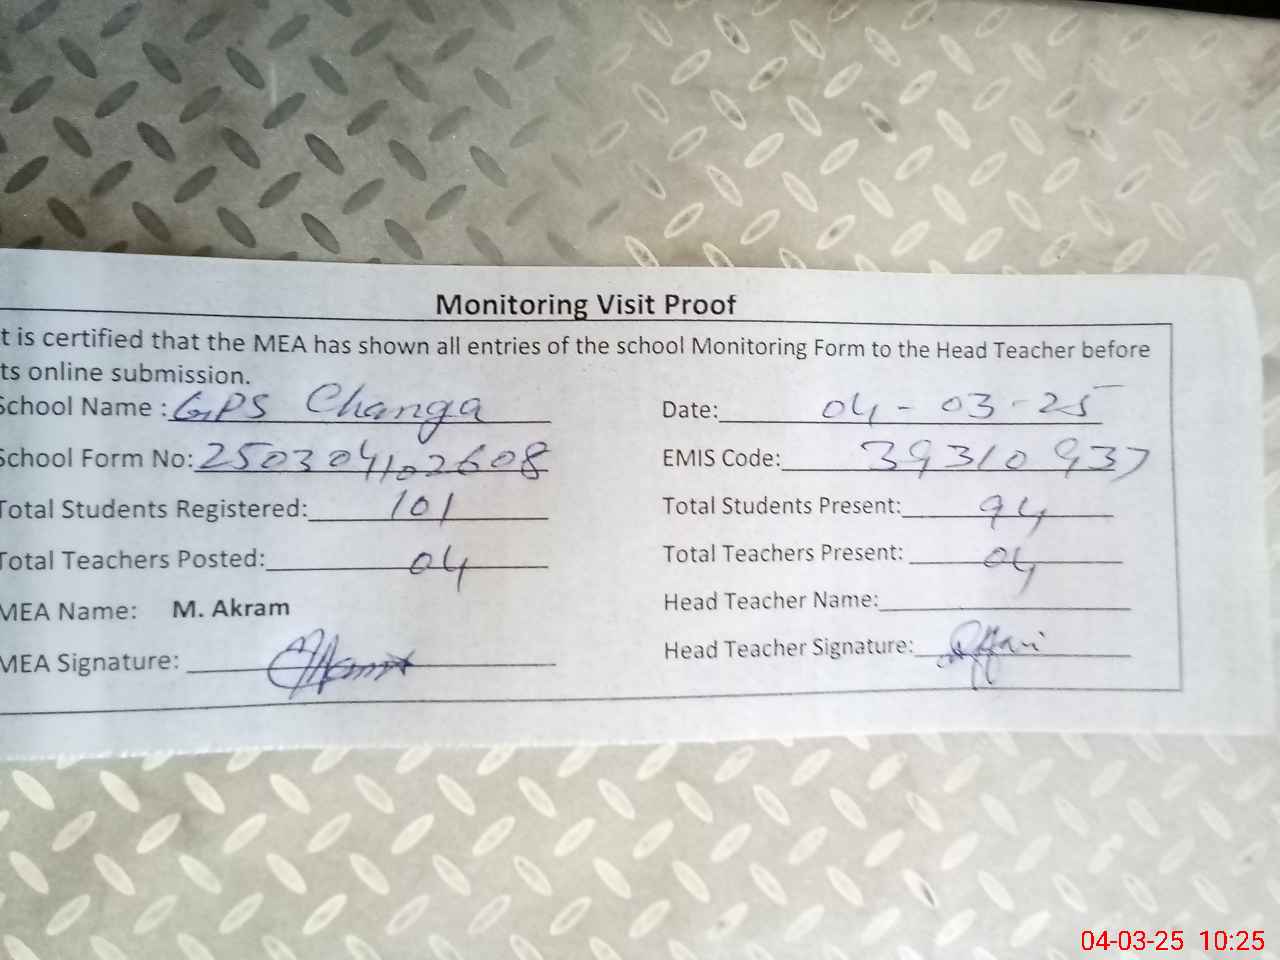 Monitoring Visit Proof
t is certified that the MEA has shown all entries of the school Monitoring Form to the Head Teacher before
ts online submission.
School Name : GPS Changa Date: 04-03-25
School Form No: 2503041102608 EMIS Code: 39310937
Total Students Registered: 101 Total Students Present: 94
Total Teachers Posted: 04 Total Teachers Present: 04
MEA Name: M. Akram Head Teacher Name:
MEA Signature: Head Teacher Signature:
04-03-25 10:25